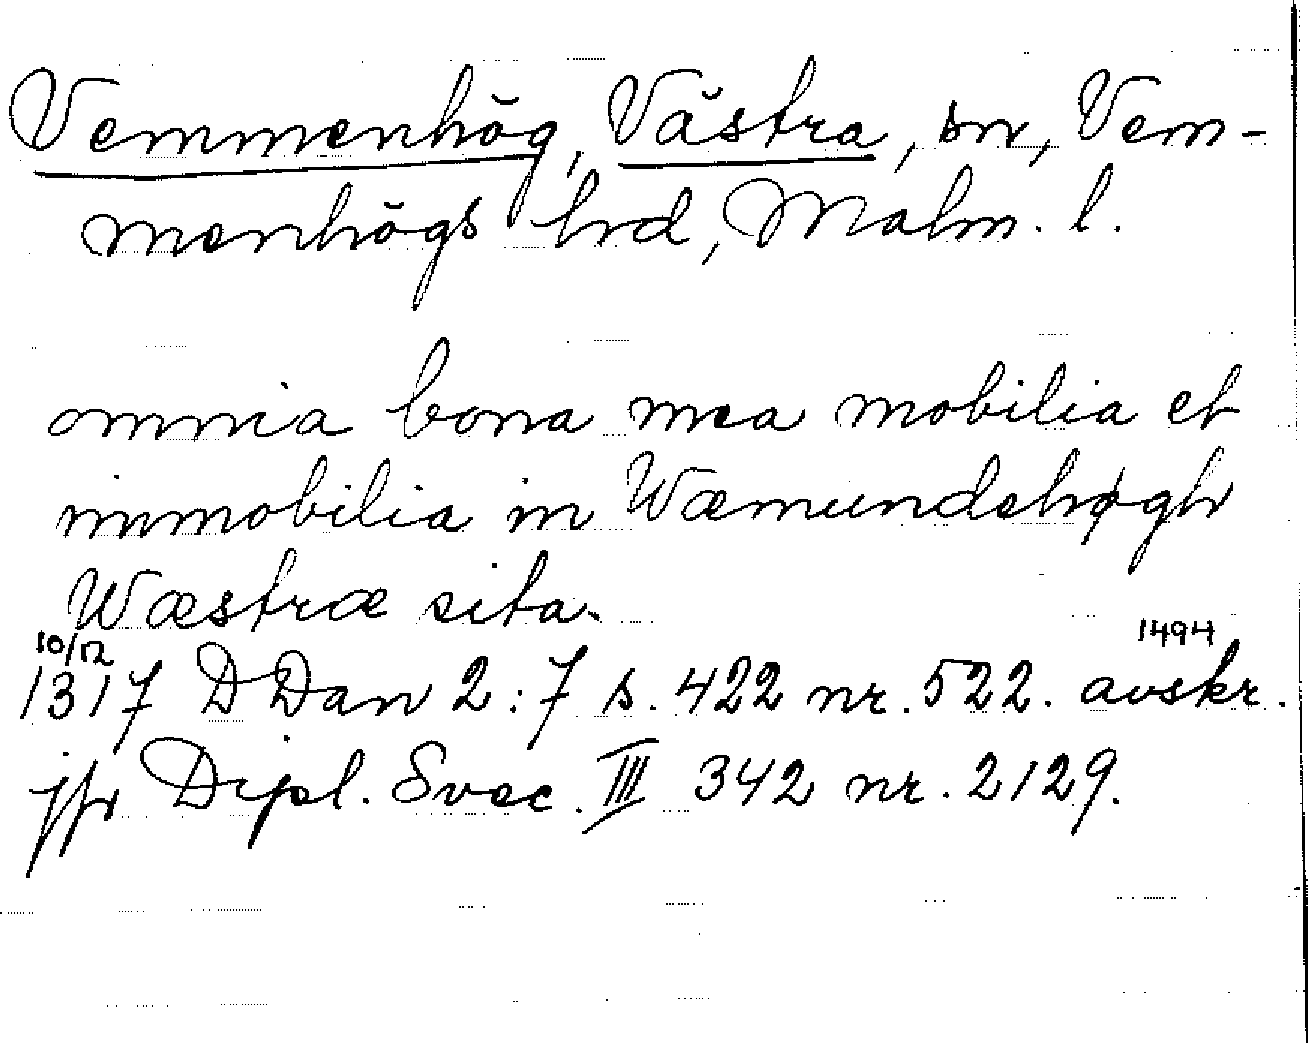 Vemmenhög, Västra, sn, Vem-
menhögs hrd, Malm. l.
omnia bona mea mobilia et
immobilia in Wæmundehøgh
Wæstræ sita.
10/12
1317 DDan 2:7 s. 422 nr. 522. avskr. 1494
jfr Dipl. Svec. III 342 nr. 2129.